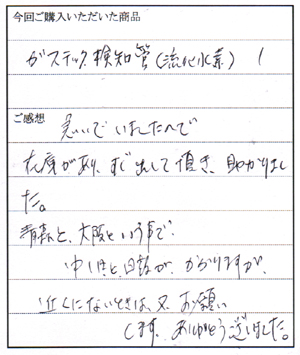 今回ご購入いただいた商品
ガステック検知管(流化水素) 1
ご感想
急いでいましたんで
在庫があり、すぐ出して頂き、助かりまし
た。
青森と、大阪という事で、
中1日と、日数が、かかりますが、
近くにないときは、又、お願い
します。ありがとう ございました。